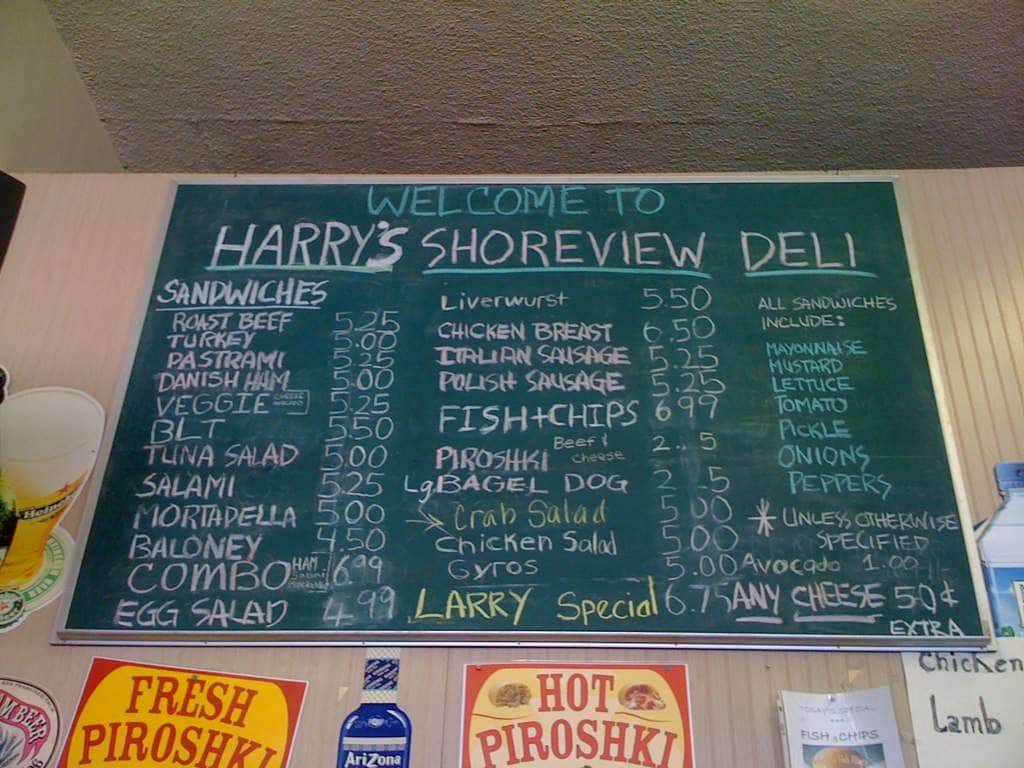 WELCOME TO
HARRY'S SHOREVIEW DELI
SANDWICHES
ROAST BEEF 5.25
TURKEY 5.00
PASTRAMI 5.25
DANISH HAM 5.00
VEGGIE CHEESE AVOCADO 5.25
BLT 5.50
TUNA SALAD 5.00
SALAMI 5.25
MORTADELLA 5.00
BALONEY 4.50
COMBO HAM 6.99
EGG SALAD 4.99
Liverwurst 5.50
CHICKEN BREAST 6.50
ITALIAN SAUSAGE 5.25
POLISH SAUSAGE 5.25
FISH+CHIPS 6.99
PIROSHKI Beef & Cheese 2..5
Lg. BAGEL DOG 2 5
Crab Salad 5.00
Chicken Salad 5.00
Gyros 5.00
LARRY Special 6.75
ALL SANDWICHES
INCLUDE:
MAYONNAISE
MUSTARD
LETTUCE
TOMATO
PICKLE
ONIONS
PEPPERS
* UNLESS OTHERWISE
SPECIFIED
Avocado 1.00
ANY CHEESE 50¢
EXTRA
Heineken
FRESH
PIROSHKI
AriZona
HOT
PIROSHKI
TODAY'S SPECIAL
FISH & CHIPS
Chicken
Lamb